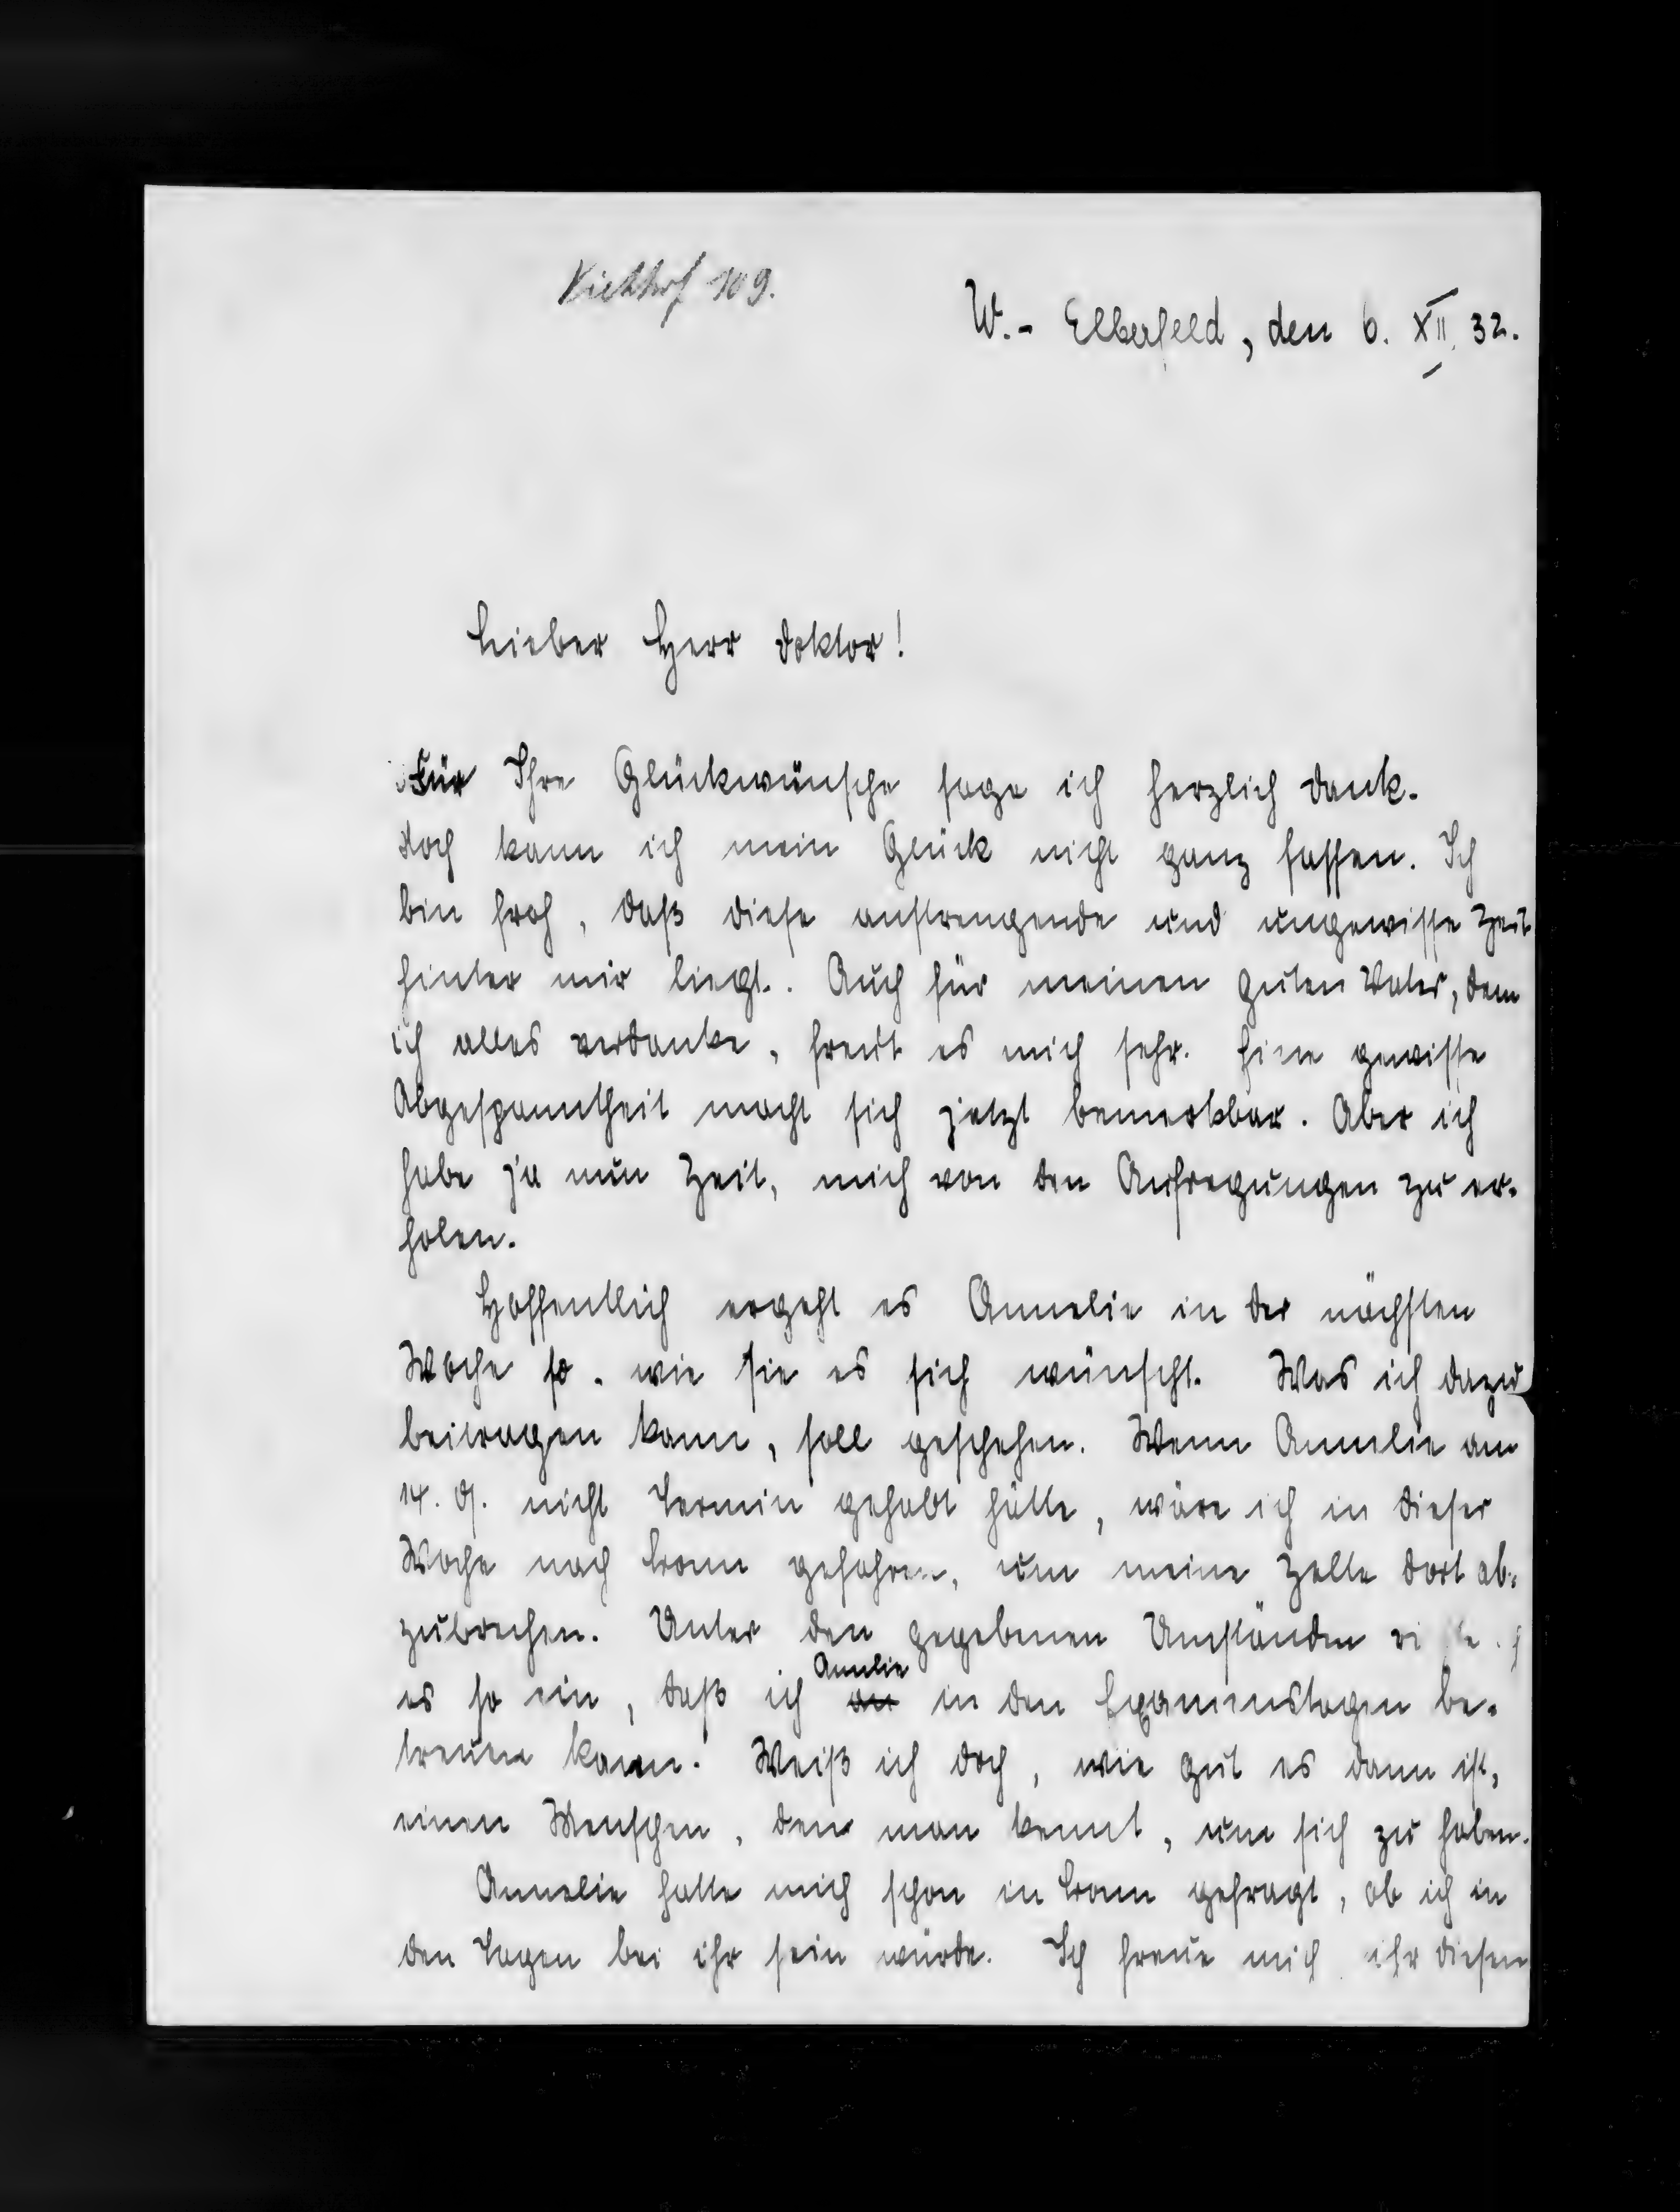 Viehhof 109.
W.- Elberfeld, den 6. XII. 32.
Lieber Herr Doktor!
Für Ihre Glückwünsche sage ich herzlich Dank.
Noch kann ich mein Glück nicht ganz fassen. Ich
bin froh, daß diese anstrengende und ungewisse Zeit
hinter mir liegt. Auch für meinen guten Vater, dem
ich alles verdanke, freut es mich sehr. Eine gewisse
Abgespanntheit macht sich jetzt bemerkbar. Aber ich
habe ja nun Zeit, mich von den Aufregungen zu er-
holen.
Hoffentlich ergeht es Annelie in der nächsten
Woche so, wie sie es sich wünscht. Was ich dazu
beitragen kann, soll geschehen. Wenn Annelie am
14. d. nicht Termin gehabt hätte, wäre ich in dieser
Woche nach Bonn gefahren, um meine Zelte dort ab-
zubrechen. Unter den gegebenen Umständen
Annelie
es so ein, daß ich an in den Examenstagen be-
treuen kann. Weiß ich doch, wie gut es dann ist,
einen Menschen, den man kennt, um sich zu haben.
Annelie hatte mich schon in Bonn gefragt, ob ich in
den Tagen bei ihr sein würde. Ich freue mich ihr diesen